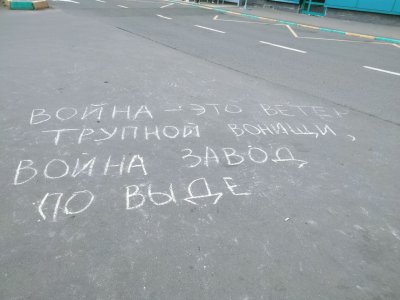 ВОЙНА - ЭТО ВЕТЕР
ТРУПНОЙ ВОНИЩИ,
ВОИНА ЗАВОД
ПО ВЫДЕ